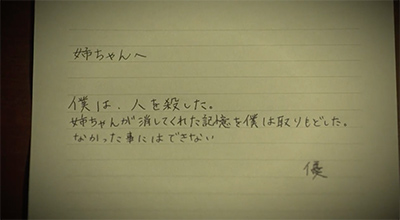 姉ちゃんへ
僕は、人を殺した。
姉ちゃんが消してくれた記憶を僕は取りもどした。
なかった事にはできない
優